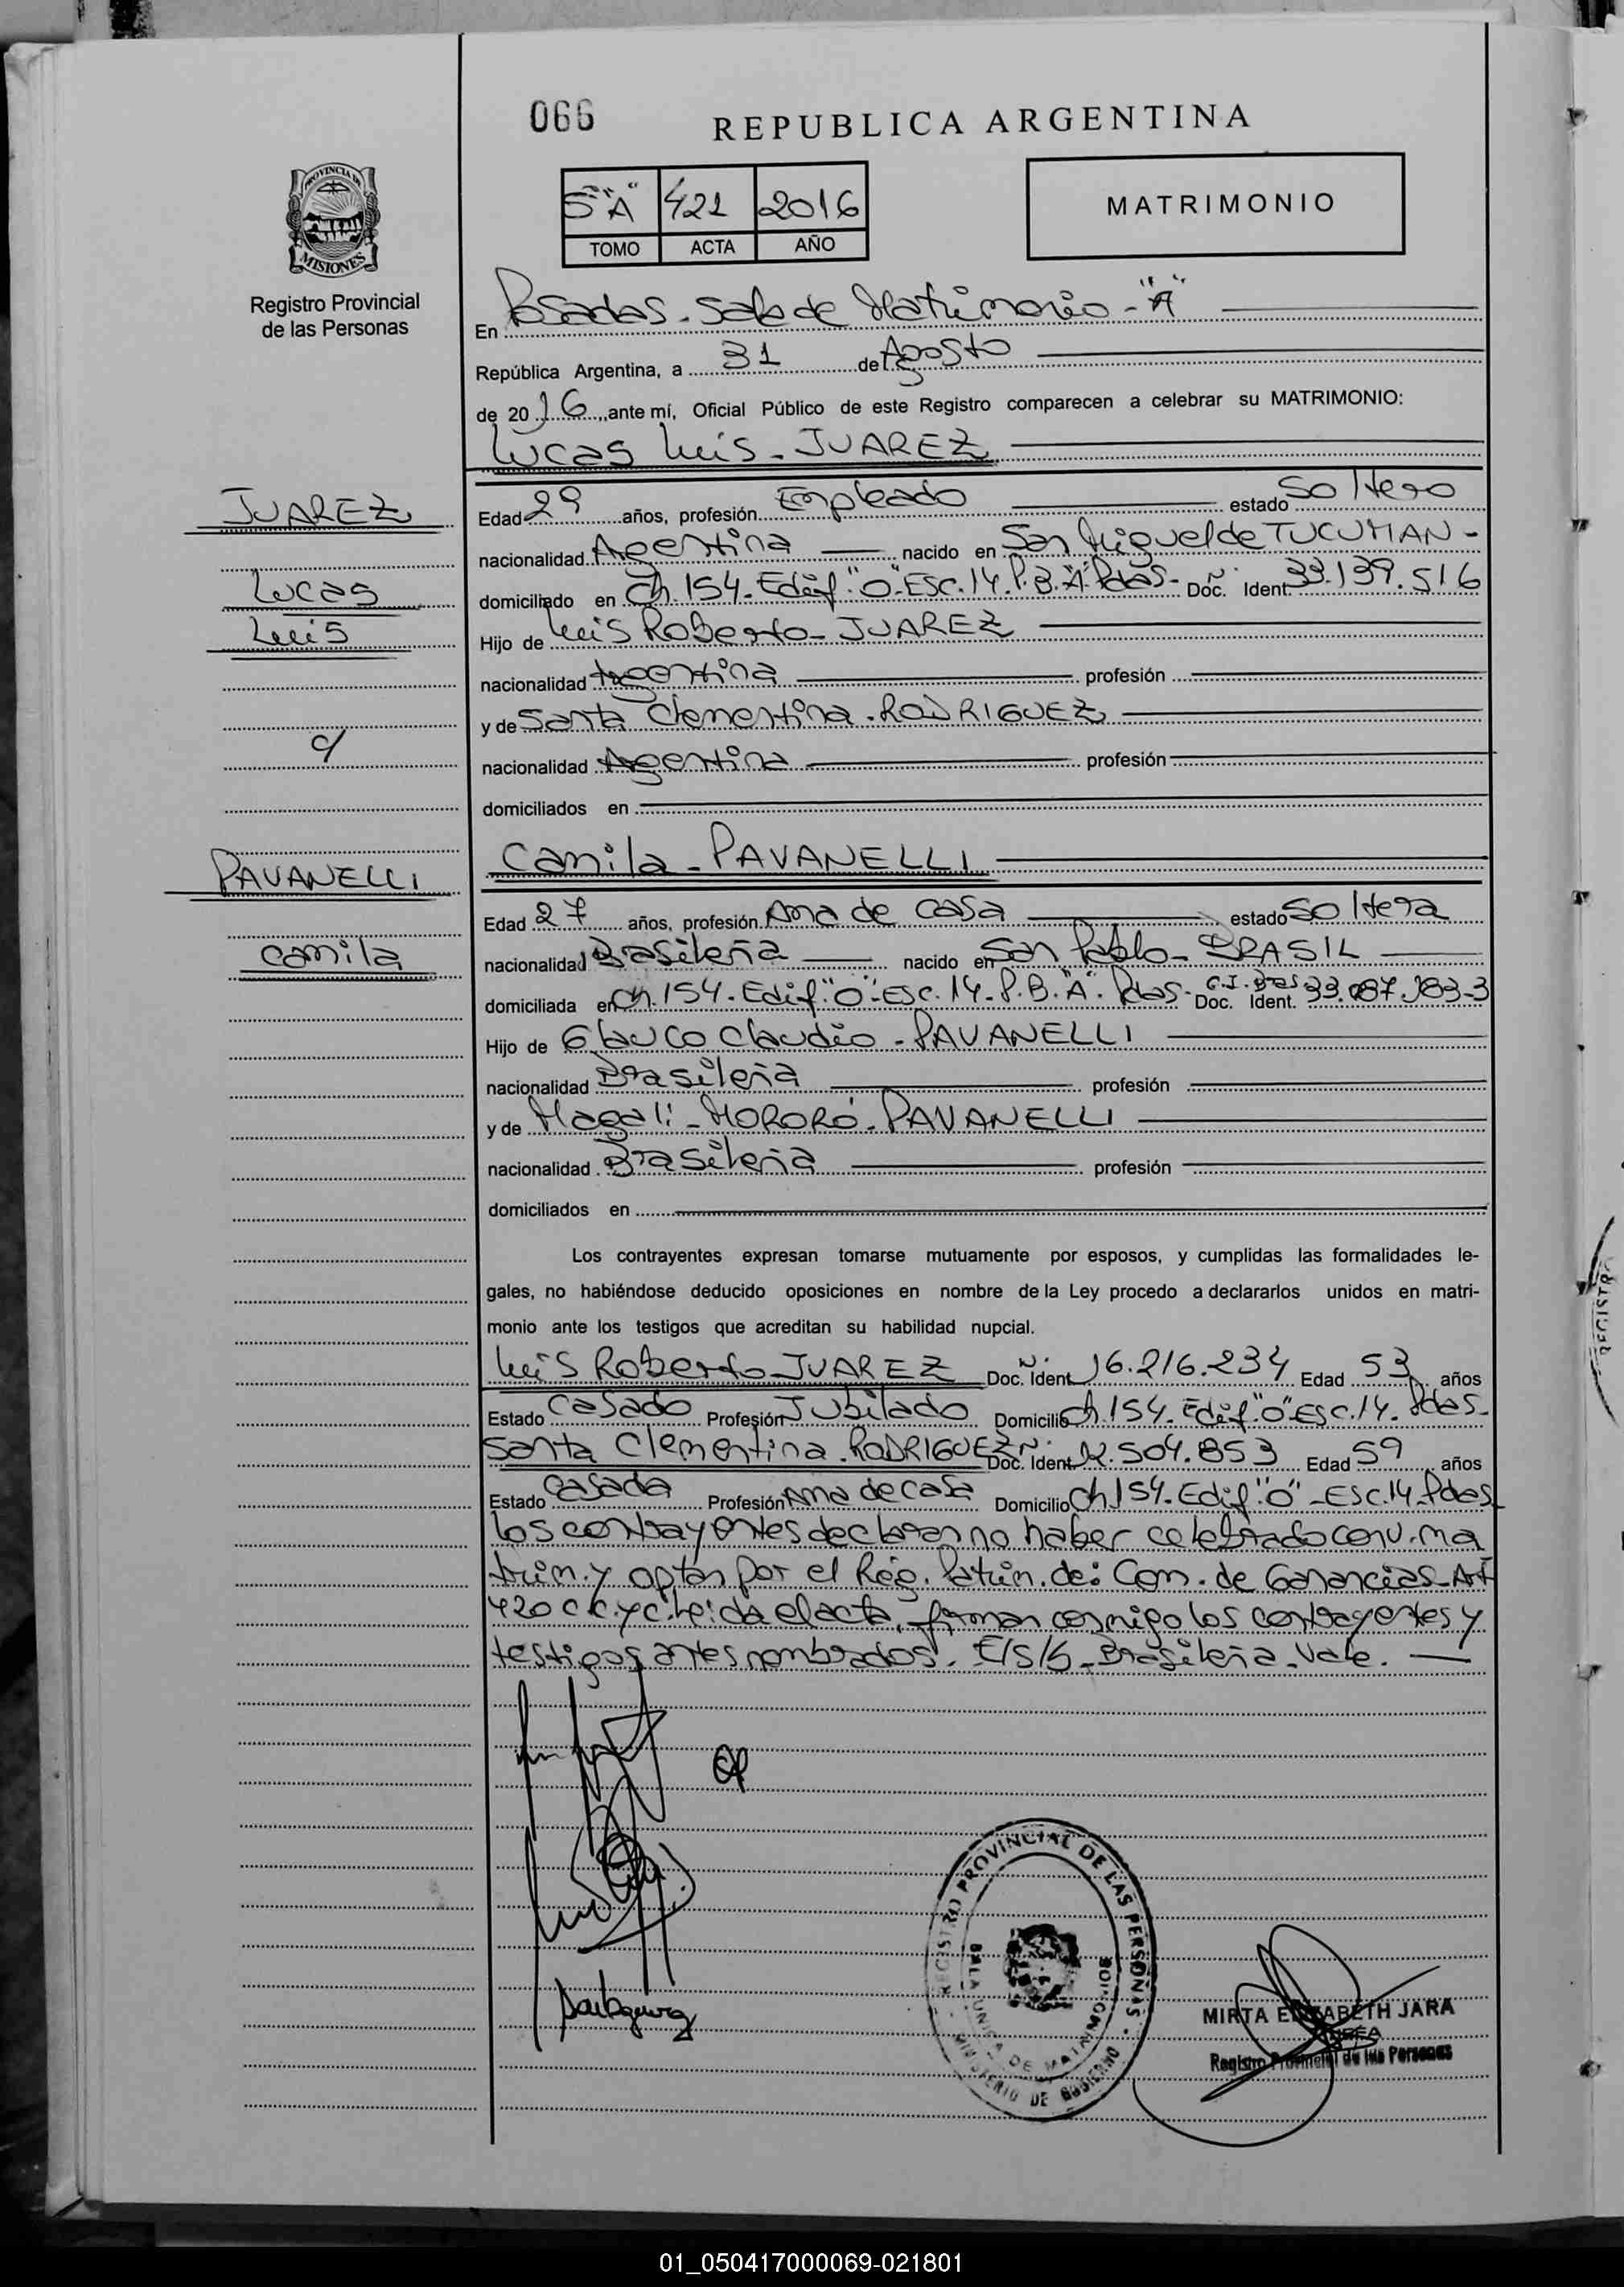 066
REPUBLICA ARGENTINA
PROVINCIA DE
MISIONES
Registro Provincial
de las Personas
5° "A" 421 2016
TOMO ACTA AÑO
MATRIMONIO
En Posadas - Sala de Matrimonio - "A"
República Argentina, a 31 de Agosto
de 2016, ante mí, Oficial Público de este Registro comparecen a celebrar su MATRIMONIO:
Lucas Luis - JUAREZ
JUAREZ
Lucas
Luis
c/
PAVANELLI
Camila
Edad 29 años, profesión Empleado estado Soltero
nacionalidad Argentina nacido en San Miguel de TUCUMAN -
domiciliado en Ch. 154. Edif. "O" Esc. 14. P.B. "A" Pdas - Doc. Ident. 33.139.516
Hijo de Luis Roberto - JUAREZ
nacionalidad Argentina profesión
y de Santa Clementina - RODRIGUEZ
nacionalidad Argentina profesión
domiciliados en
Camila - PAVANELLI
Edad 27 años, profesión Ama de casa estado Soltera
nacionalidad Brasileña nacido en San Pablo - BRASIL
domiciliada en Ch. 154. Edif. "O" - Esc. 14. P.B. "A". Pdas - C.I. Bras Doc. Ident. 33.087.183-3
Hijo de Glauco Claudio - PAVANELLI
nacionalidad Brasileña profesión
y de Magali - MORORÓ - PAVANELLI
nacionalidad Brasileña profesión
domiciliados en
Los contrayentes expresan tomarse mutuamente por esposos, y cumplidas las formalidades le-
gales, no habiéndose deducido oposiciones en nombre de la Ley procedo a declararlos unidos en matri-
monio ante los testigos que acreditan su habilidad nupcial.
Luis Roberto JUAREZ Doc. Ident. 16.216.234 Edad 53 años
Estado Casado Profesión Jubilado Domicilio Ch. 154. Edif. "O" Esc. 14. Pdas -
Santa Clementina - RODRIGUEZ Doc. Ident. 12.504.853 Edad 59 años
Estado Casada Profesión Ama de casa Domicilio Ch 154. Edif. "O" - Esc. 14 Pdas
Los contrayentes declaran no haber celebrado conv. ma
trim. y optan por el Rég. Patrim. de: Com. de Ganancias - Art
420 C.C. y C. Leída el acta, firman conmigo los contrayentes y
testigos antes nombrados. E/S/b - Brasileña - Vale.
REGISTRO PROVINCIAL DE LAS PERSONAS
MINISTERIO DE GOBIERNO
MIRTA ELIZABETH JARA
JEFA
Registro Provincial de las Personas
REGISTR
01_050417000069-021801